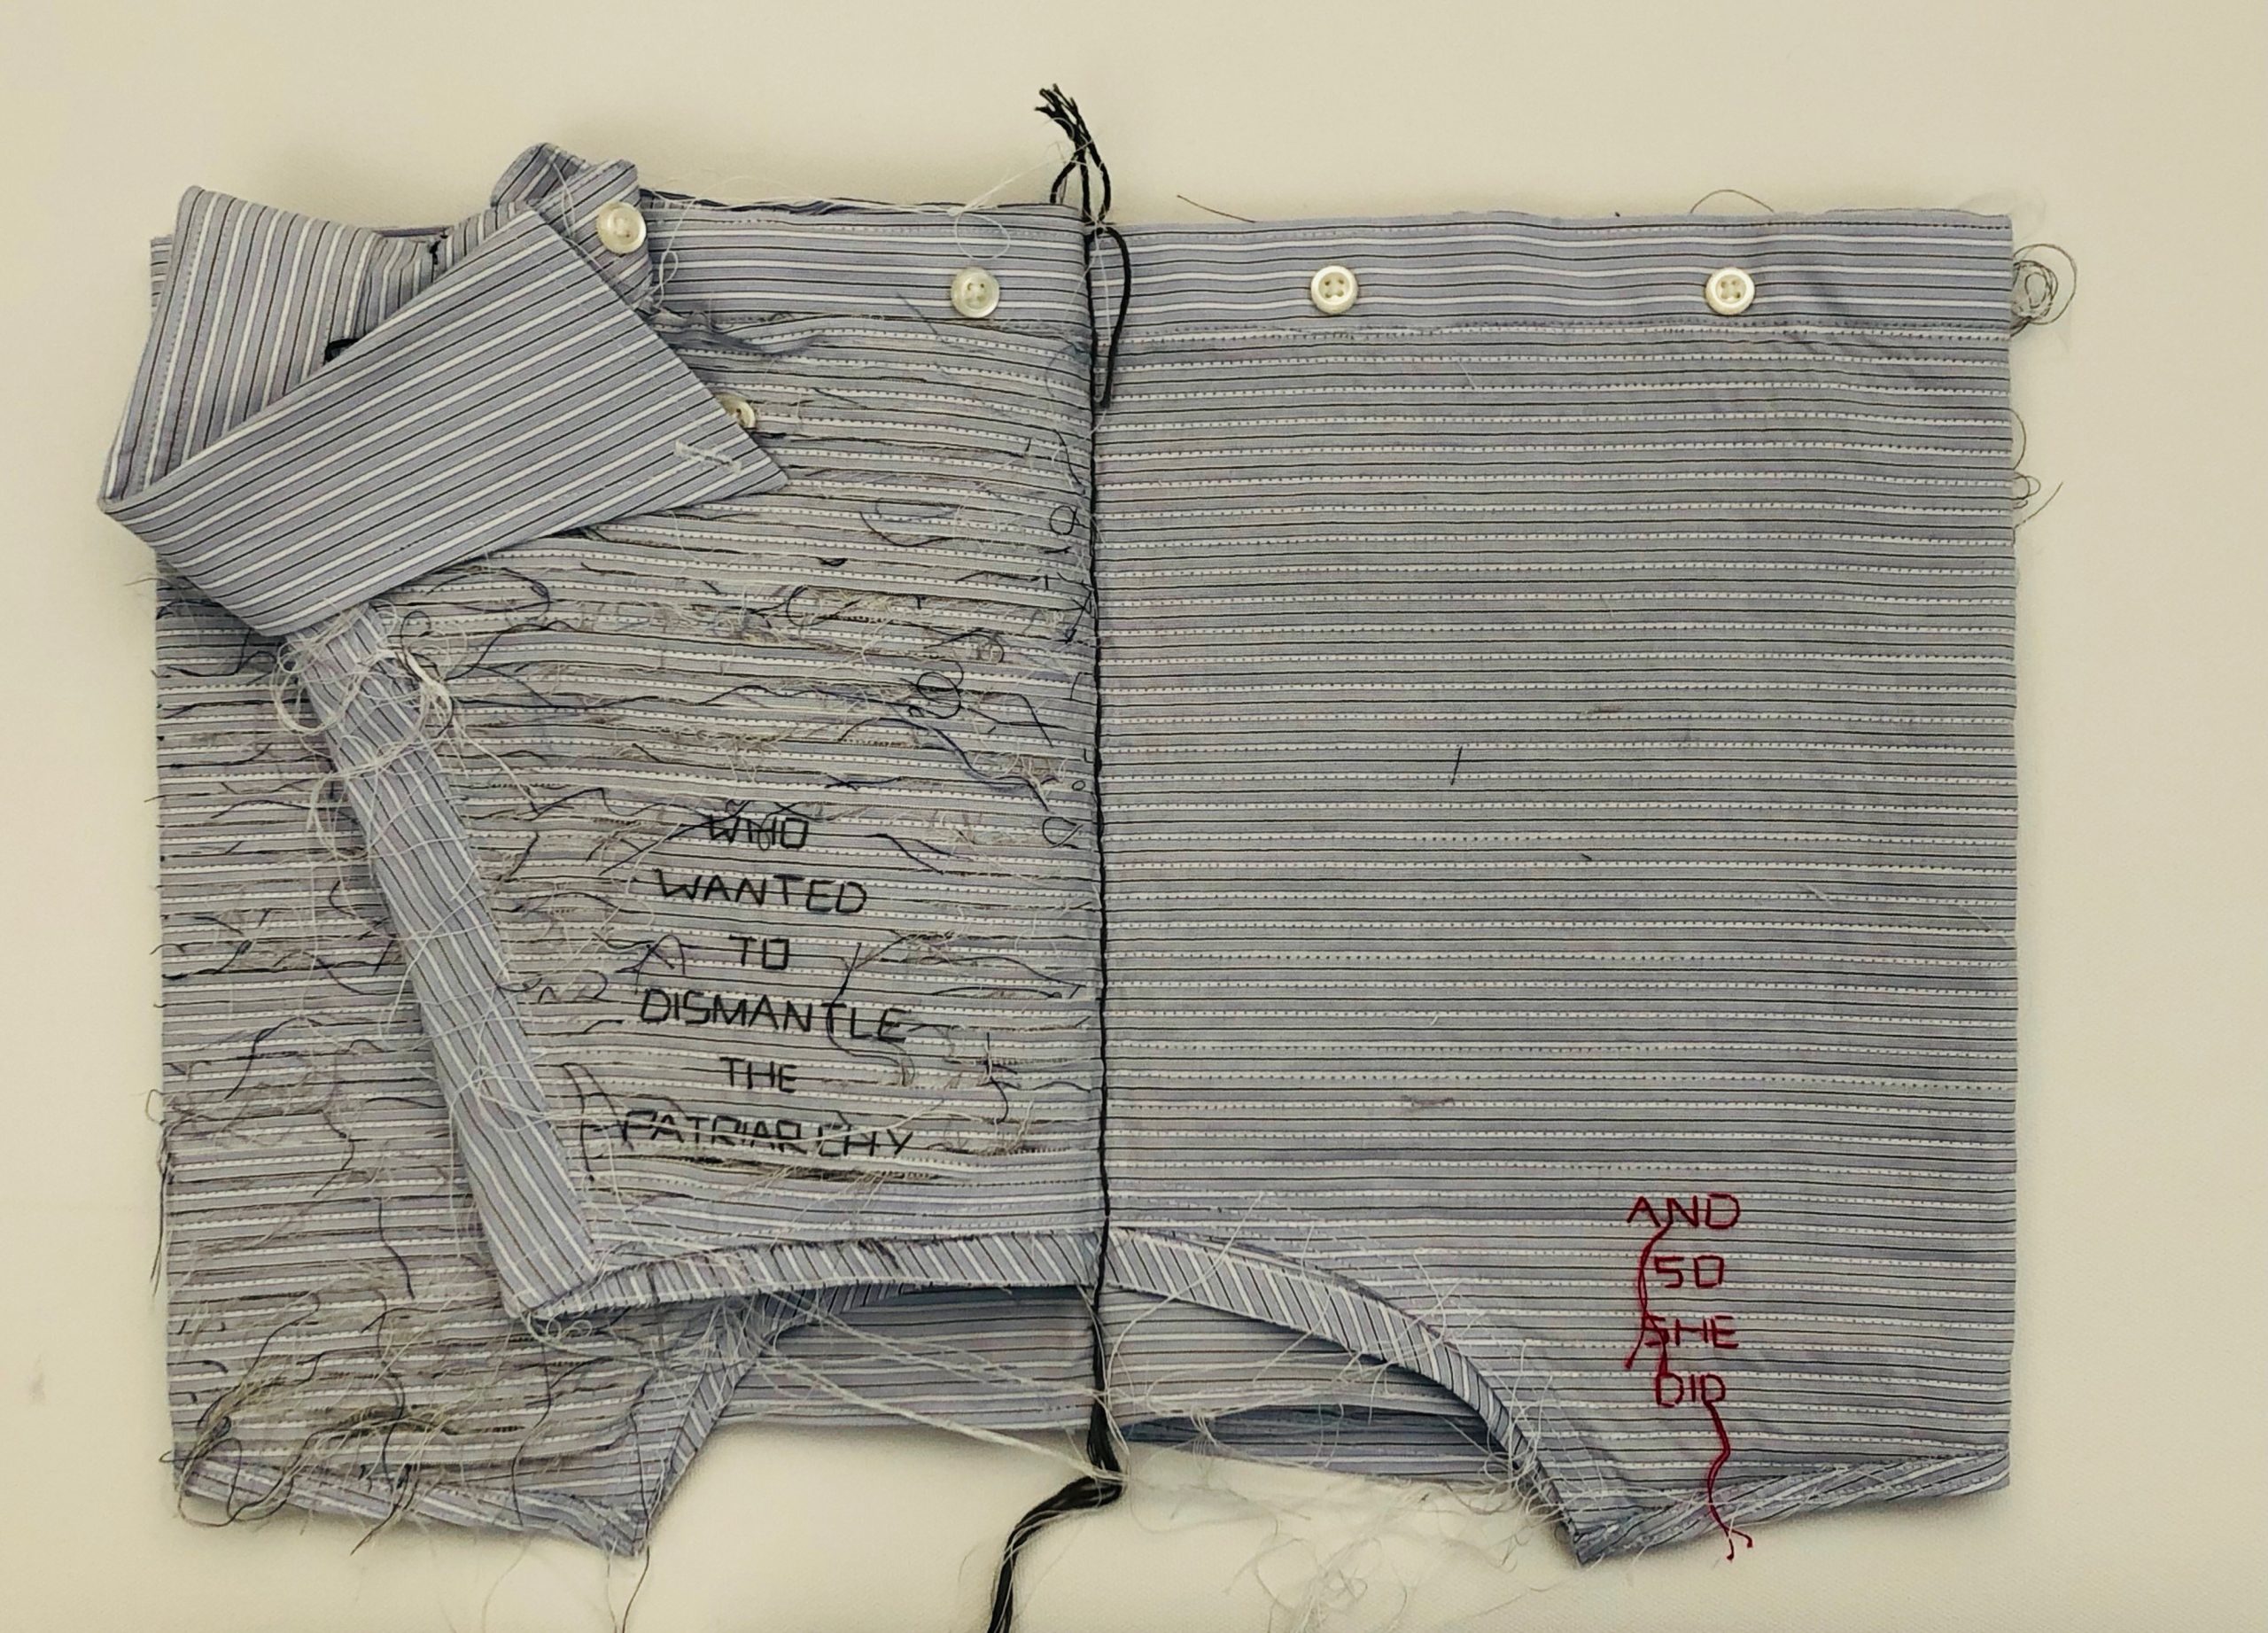 WHO
WANTED
TO
DISMANTLE
THE
PATRIARCHY
AND
SO
SHE
DID